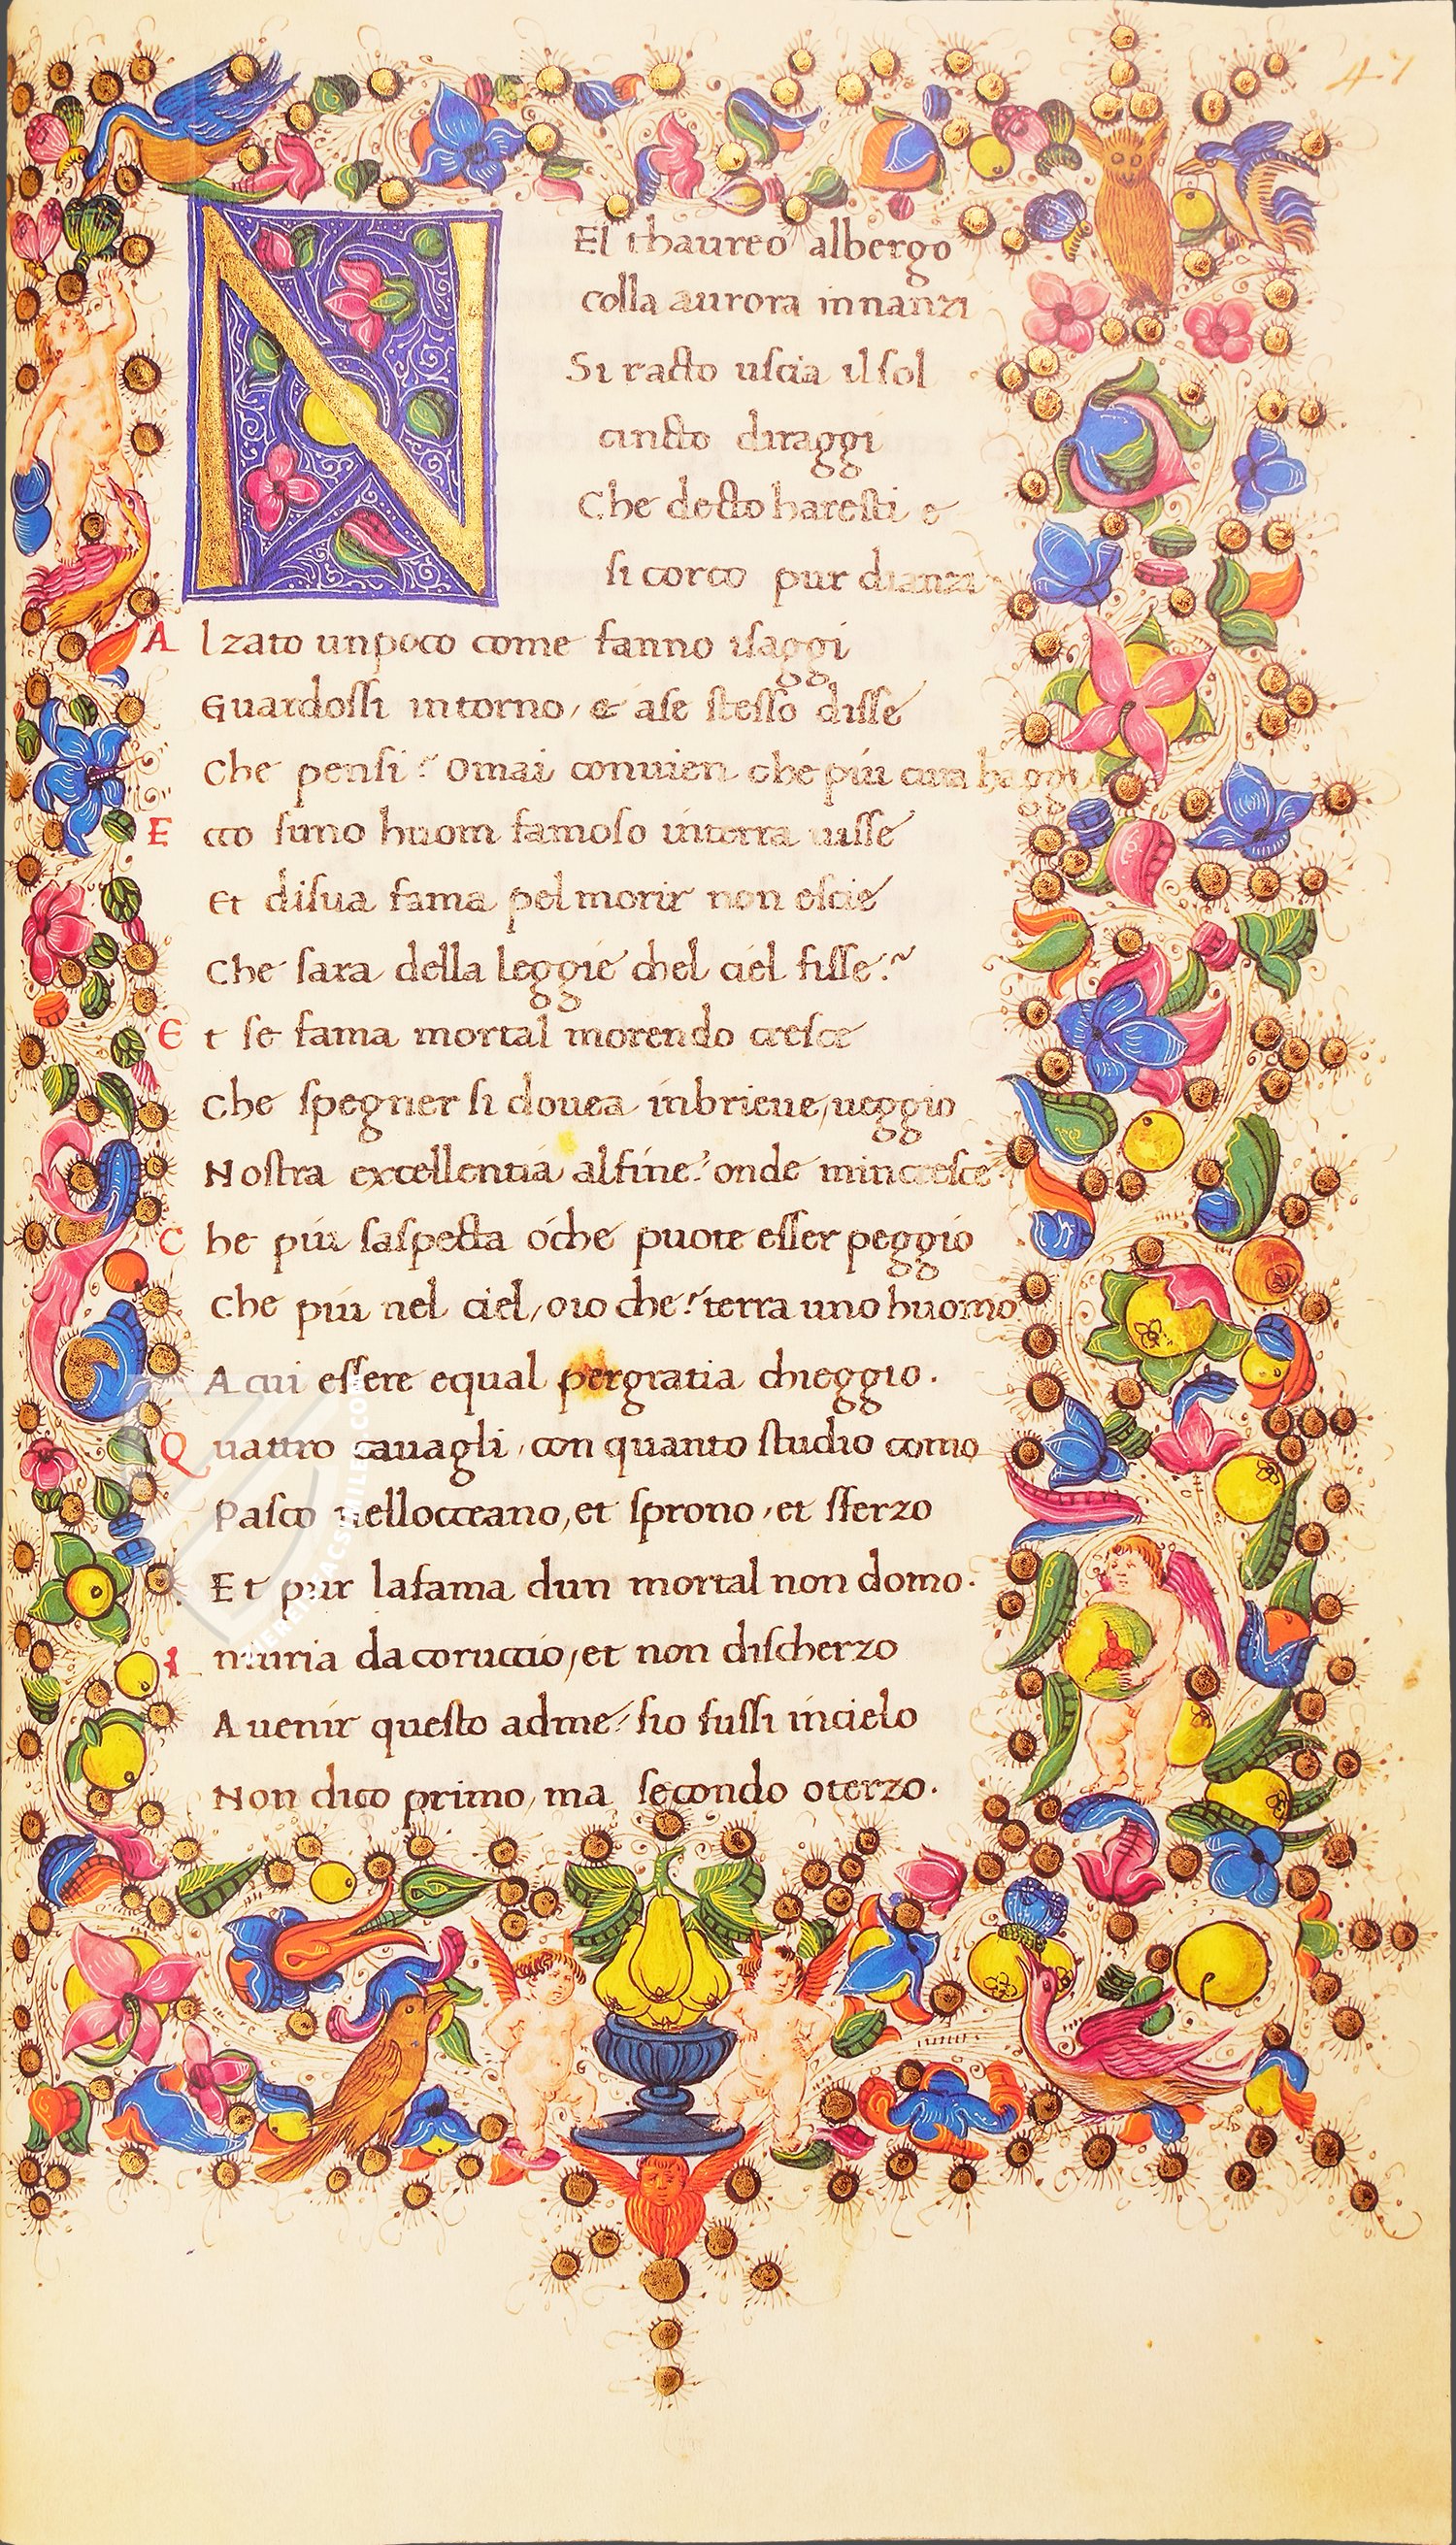 47
NEl thaureo albergo
colla aurora innanzi
Si racto uscia il sol
cincto diraggi
Che decto haresti e
si corco pur dianzi
Alzato unpoco come fanno isaggi
Guardossi intorno, & ase stesso disse
Che pensi? Omai conuien che più cura haggi
Ecco suno huom famoso interra uisse
Et disua fama pel morir non escie
Che sara della leggie chel ciel fisse?
Et se fama mortal morendo cresce
Che spegner si douea inbrieue, ueggio
Nostra excellentia alfine? onde mincresce
Che più saspecta o che puote esser peggio
Che più nel ciel, o io che? terra uno huomo
A cui essere equal pergratia chieggio.
Quattro cauagli, con quanto studio como
Pasco nelloceano, et sprono, et sferzo
Et pur lafama dun mortal non domo.
Iniuria da coruccio, et non discherzo
Auenir questo adme? sio fussi incielo
Non dico primo, ma secondo oterzo.